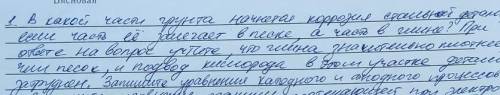 1. В какой части грунта начнется коррозия стальной детали
если часть её залегает в песке, а часть в глине? При
ответе на вопрос учтите, что глина значительно плотнее
чем песок, и подвод кислорода в этом участке детали
затруднен. Запишите уравнения катодного и анодного процессов